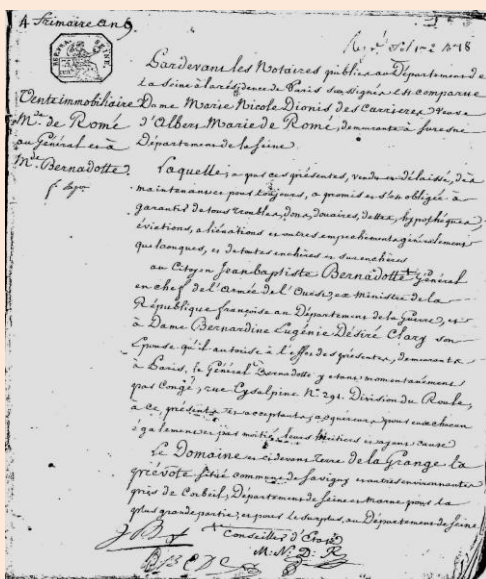 4 frimaire an 9.
Vente immobiliaire
Mde. de Romé
au Général et à
Mde. Bernadotte.
Pardevant les Notaires publics au Département de
la Seine à la résidence de Paris soussignés est comparue
Dame Marie Nicole Dionis des Carrieres Veuve
d'Albert Marie de Romé, demeurante à Suresne
Département de la Seine.
Laquelle, a par ces présentes, vendu et délaissé, dès
maintenant et pour toujours, a promis et s'en obligée à
garantir de tous troubles, dons, douaires, dettes, hypothèques,
évictions, aliénations et autres empechements généralement
quelconques, et de toutes enchères et surenchères
au Citoyen Jean Baptiste Bernadotte Général
en chef de l'armée de l'Ouest, ex Ministre de la
République française au Département de la Guerre, et
à Dame Bernardine Eugénie Désiré Clary son
Epouse qu'il autorise à l'effet des présentes, demeurants
à Paris, le Général Bernadotte y étant momentanément
par Congé, rue Cysalpine No. 291. Division du Roule,
à ce, présents et acceptants, acquéreurs pour eux chacun
également et par moitié, leurs héritiers et ayans cause
Le Domaine et cidevant Terre de la Grange la
prévôté, situé commune de Savigny et autres environnantes
près de Corbeil, Département de Seine et Marne pour la
plus grande partie, et pour le surplus, au Département de Seine
Conseiller d'Etat
M. N. D. R.